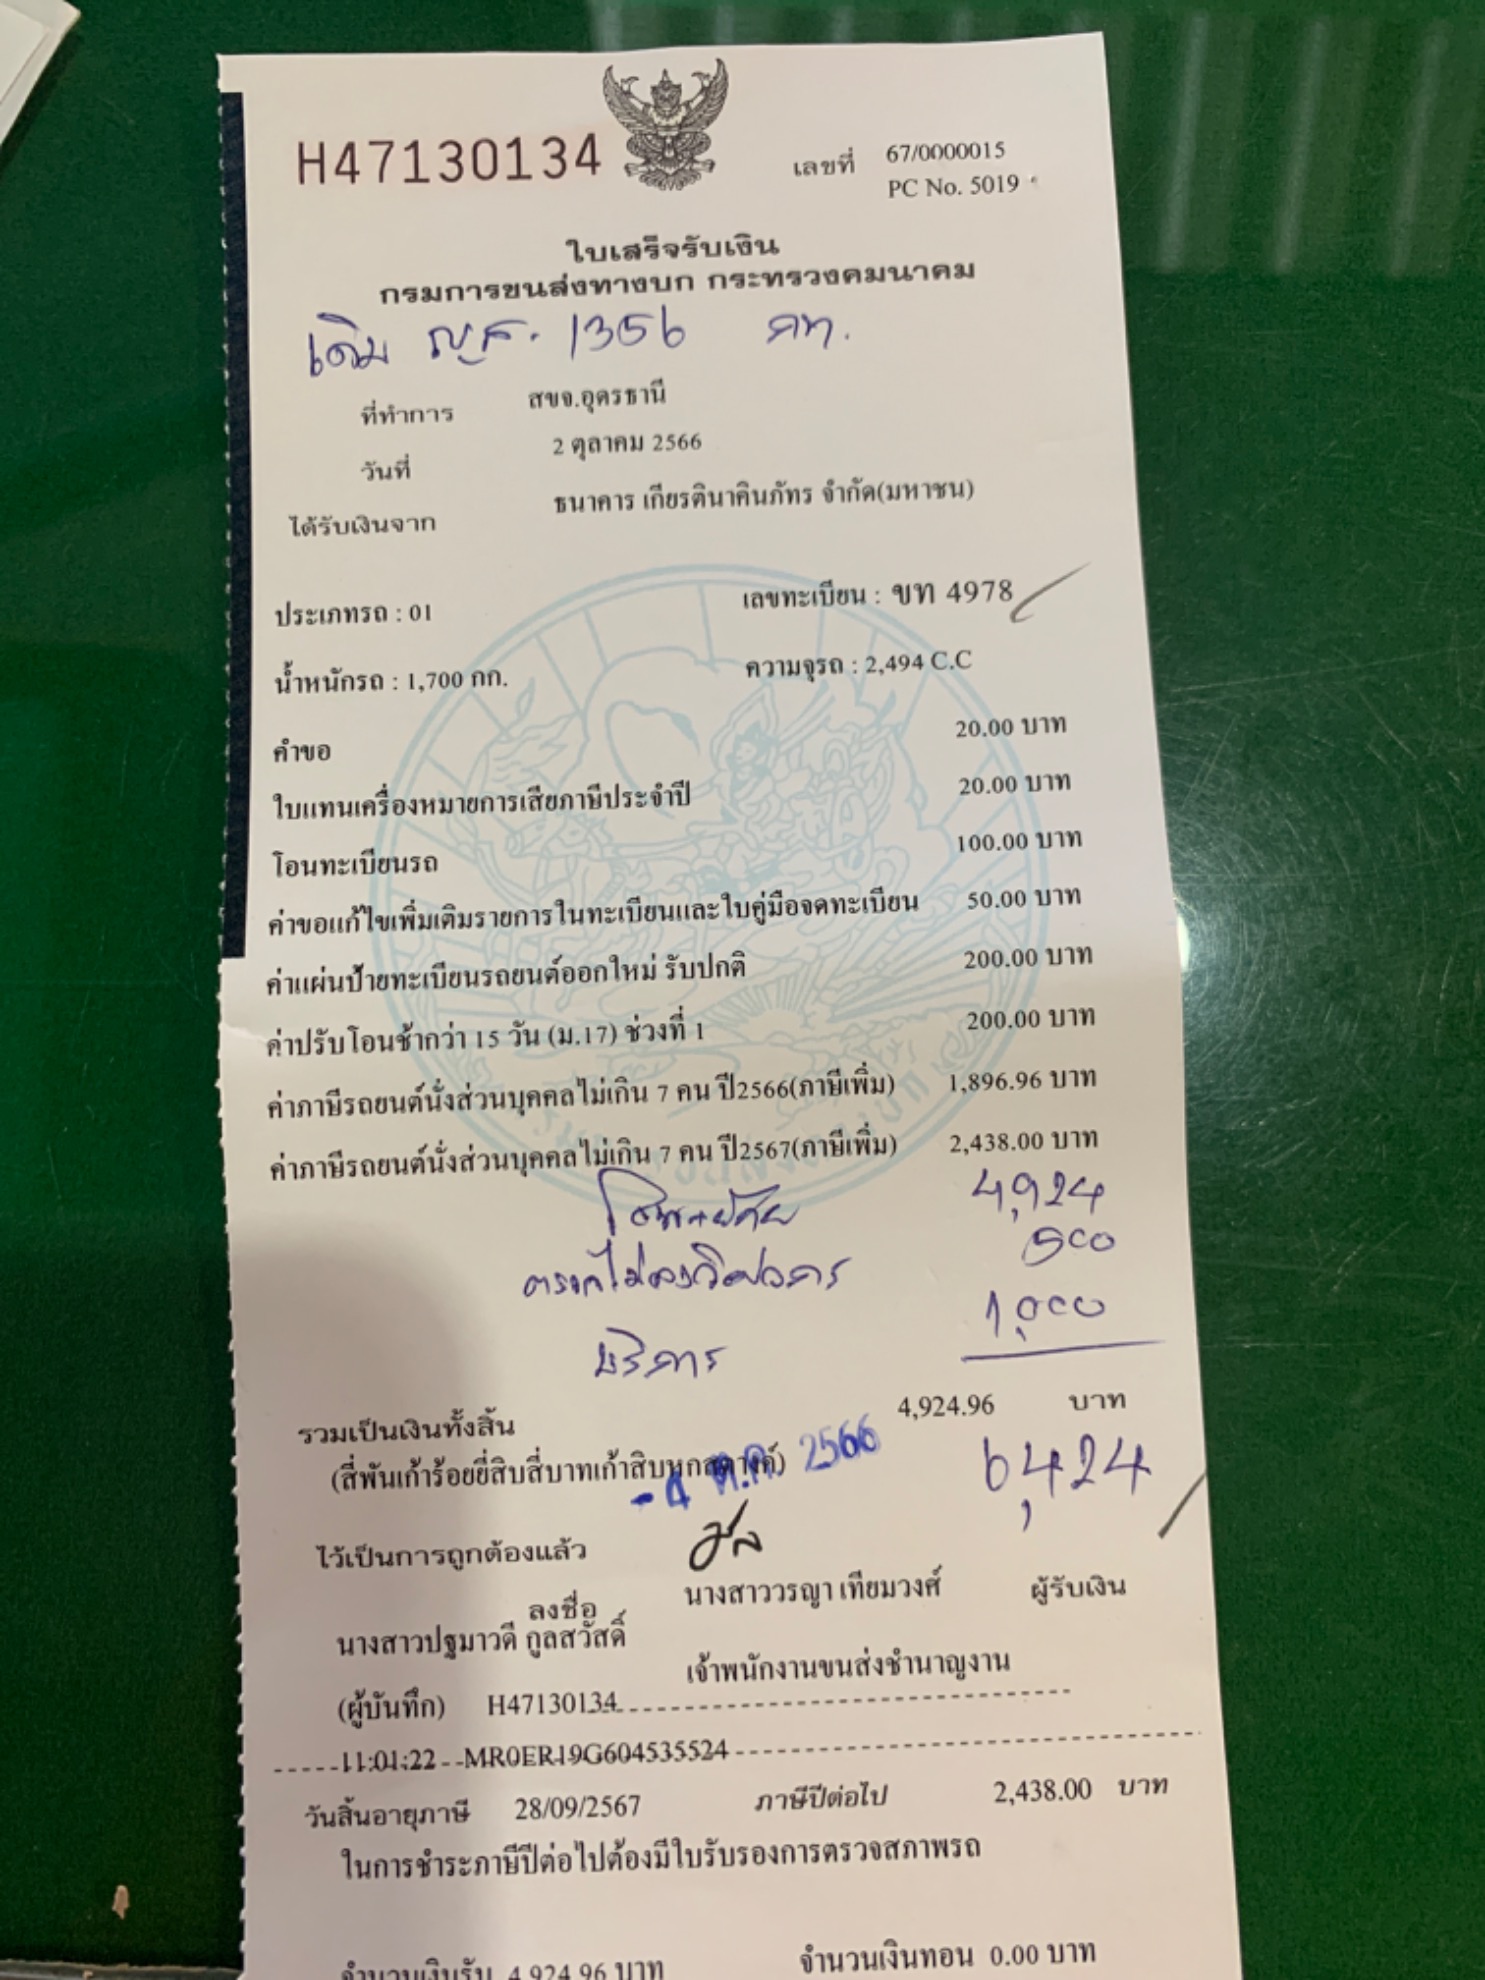 H47130134
เลขที่ 67/0000015
PC No. 5019
ใบเสร็จรับเงิน
กรมการขนส่งทางบก กระทรวงคมนาคม
เดิม ญส. 1356 กท.
ที่ทำการ สขจ.อุดรธานี
วันที่ 2 ตุลาคม 2566
ได้รับเงินจาก ธนาคาร เกียรตินาคินภัทร จำกัด(มหาชน)
ประเภทรถ : 01 เลขทะเบียน : ขท 4978
น้ำหนักรถ : 1,700 กก. ความจุรถ : 2,494 C.C
คำขอ 20.00 บาท
ใบแทนเครื่องหมายการเสียภาษีประจำปี 20.00 บาท
โอนทะเบียนรถ 100.00 บาท
ค่าขอแก้ไขเพิ่มเติมรายการในทะเบียนและใบคู่มือจดทะเบียน 50.00 บาท
ค่าแผ่นป้ายทะเบียนรถยนต์ออกใหม่ รับปกติ 200.00 บาท
ค่าปรับโอนช้ากว่า 15 วัน (ม.17) ช่วงที่ 1 200.00 บาท
ค่าภาษีรถยนต์นั่งส่วนบุคคลไม่เกิน 7 คน ปี2566(ภาษีเพิ่ม) 1,896.96 บาท
ค่าภาษีรถยนต์นั่งส่วนบุคคลไม่เกิน 7 คน ปี2567(ภาษีเพิ่ม) 2,438.00 บาท
4,924
500
บริการ 1,000
รวมเป็นเงินทั้งสิ้น 4,924.96 บาท
(สี่พันเก้าร้อยยี่สิบสี่บาทเก้าสิบหกสตางค์)
- 4 ต.ค. 2566
6,424
ไว้เป็นการถูกต้องแล้ว
ลงชื่อ นางสาววรญา เทียมวงศ์ ผู้รับเงิน
นางสาวปฐมาวดี กูลสวัสดิ์
เจ้าพนักงานขนส่งชำนาญงาน
(ผู้บันทึก) H47130134
11:01:22 MR0ER19G604535524
วันสิ้นอายุภาษี 28/09/2567 ภาษีปีต่อไป 2,438.00 บาท
ในการชำระภาษีปีต่อไปต้องมีใบรับรองการตรวจสภาพรถ
จำนวนเงินรับ 4,924.96 บาท จำนวนเงินทอน 0.00 บาท